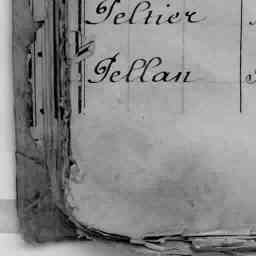 Peltier
Pellan